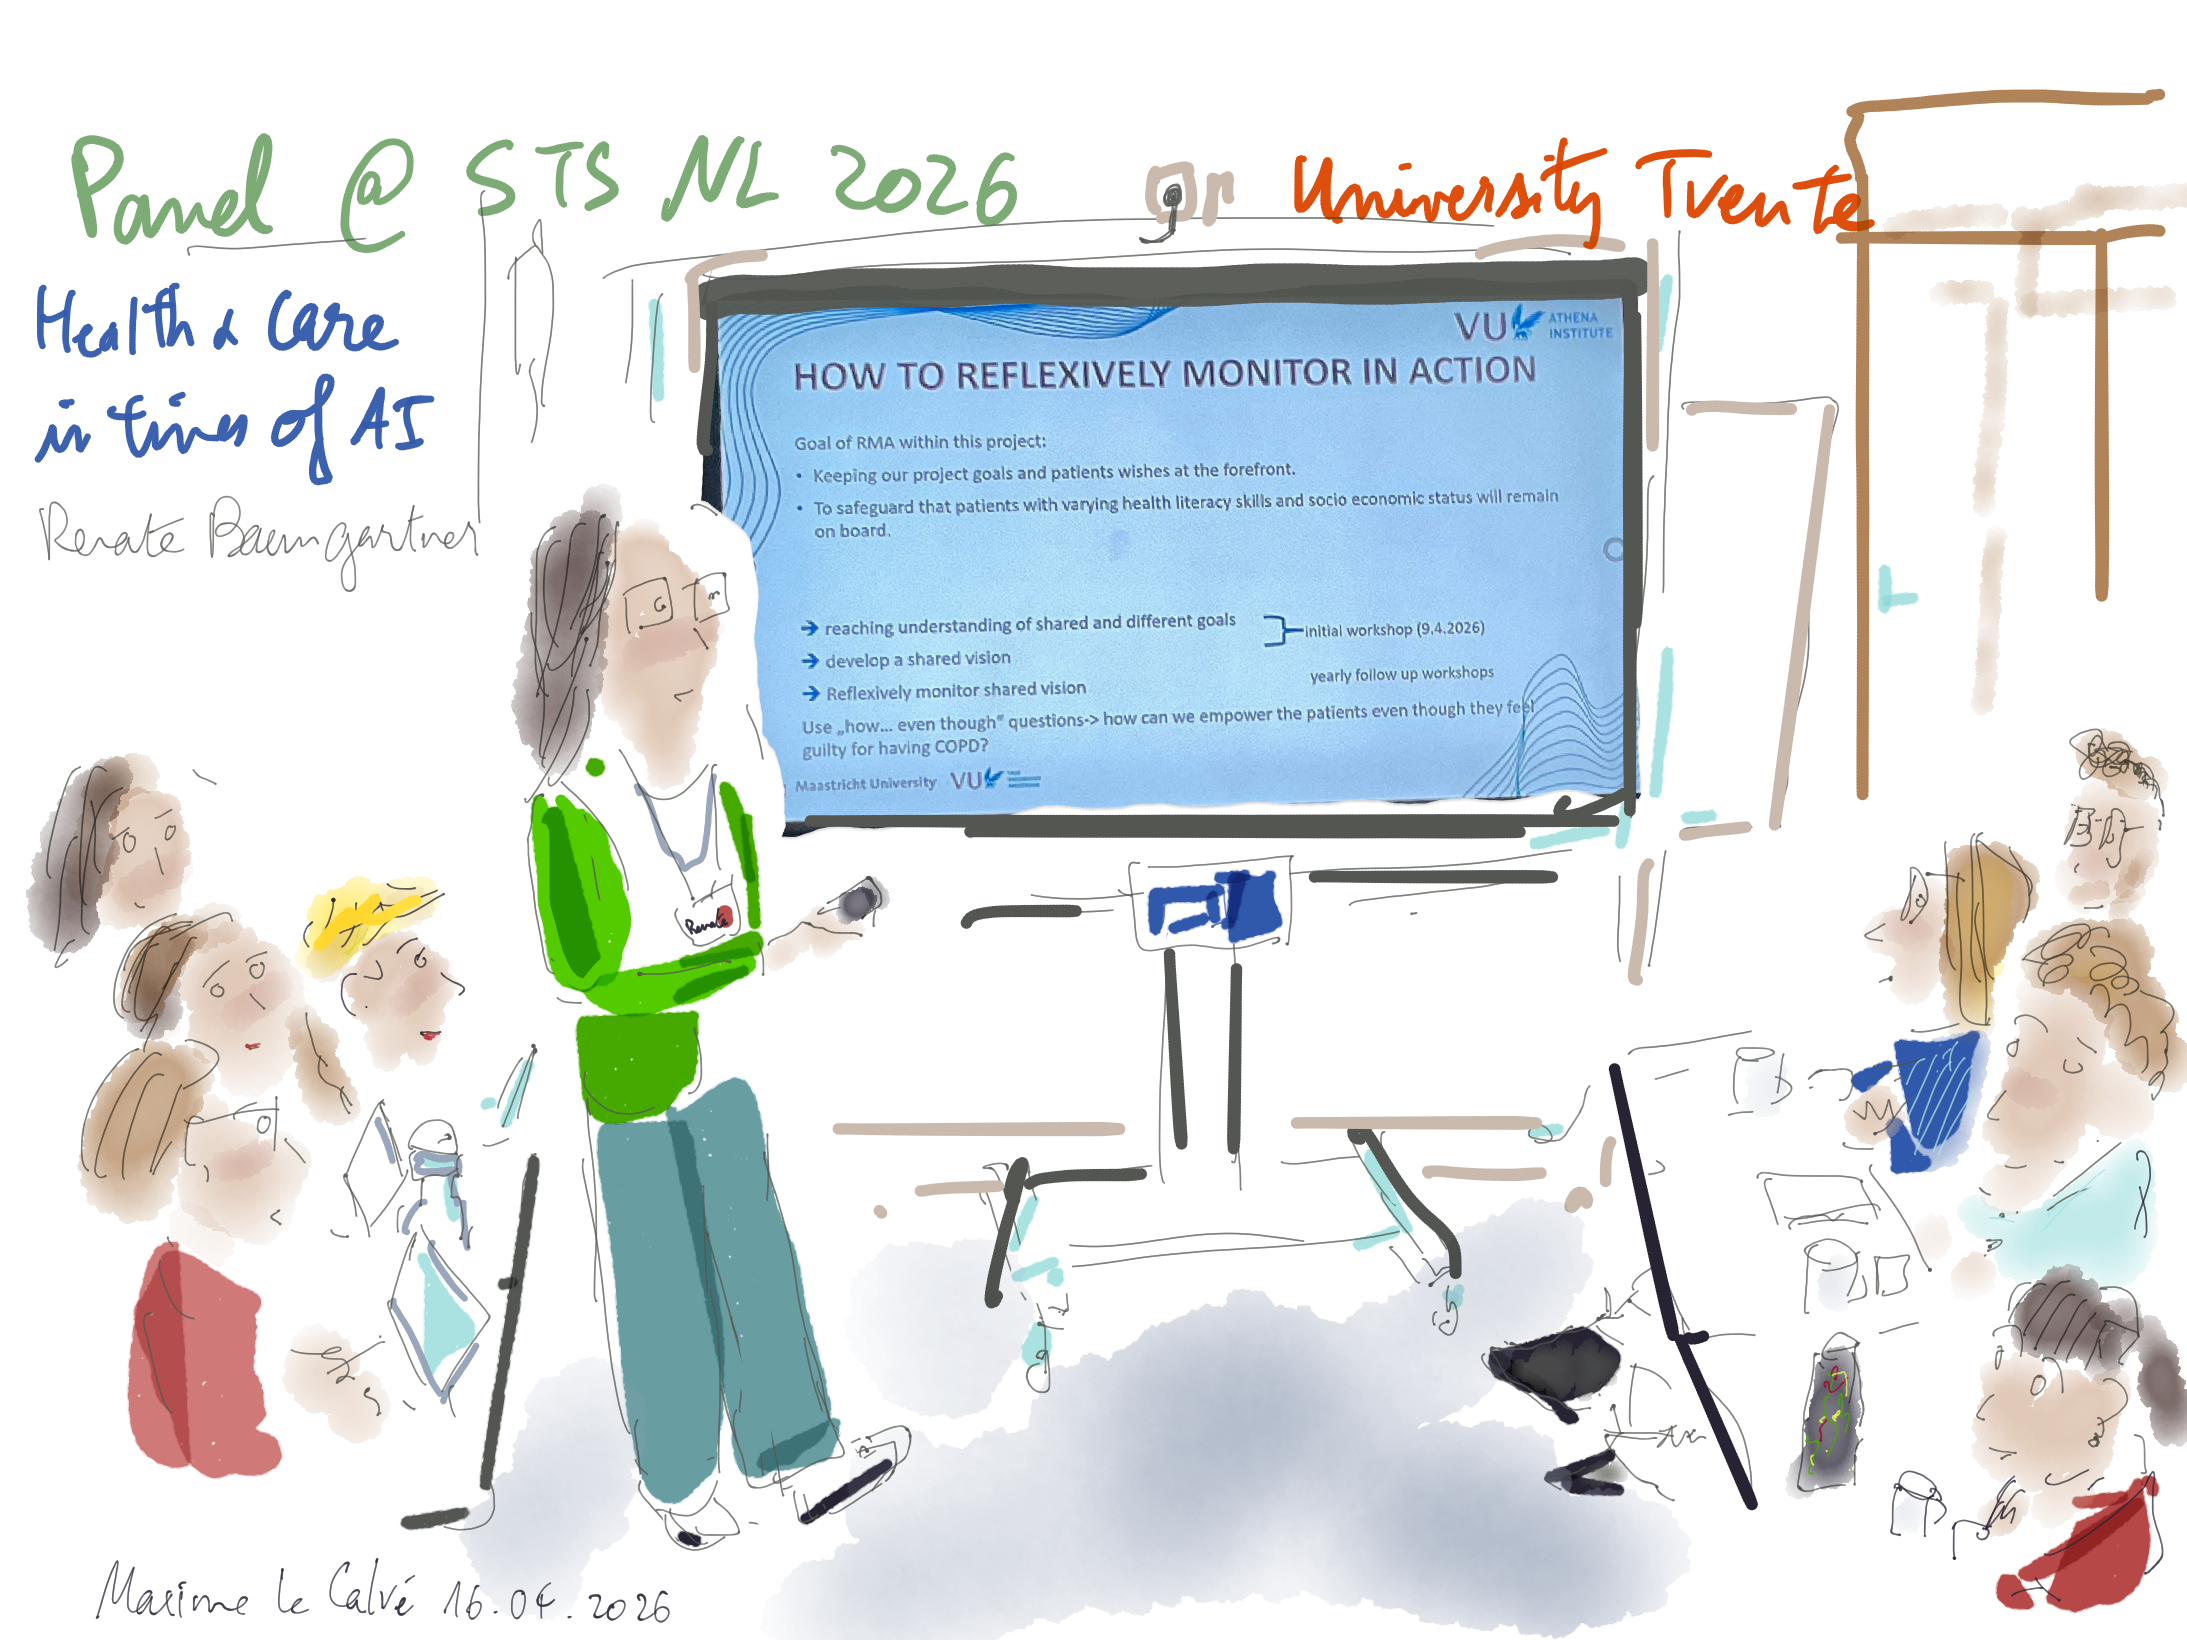 Panel @ STS NL 2026
University Tvente
Health & Care
in times of AI
Renate Baumgartner
VU ATHENA
INSTITUTE
HOW TO REFLEXIVELY MONITOR IN ACTION
Goal of RMA within this project:
• Keeping our project goals and patients wishes at the forefront.
• To safeguard that patients with varying health literacy skills and socio economic status will remain
on board.
→ reaching understanding of shared and different goals
initial workshop (9.4.2026)
→ develop a shared vision
→ Reflexively monitor shared vision
yearly follow up workshops
Use „how... even though" questions-> how can we empower the patients even though they feel
guilty for having COPD?
Maastricht University VU
Renate
Maxime Le Calvé 16.04.2026